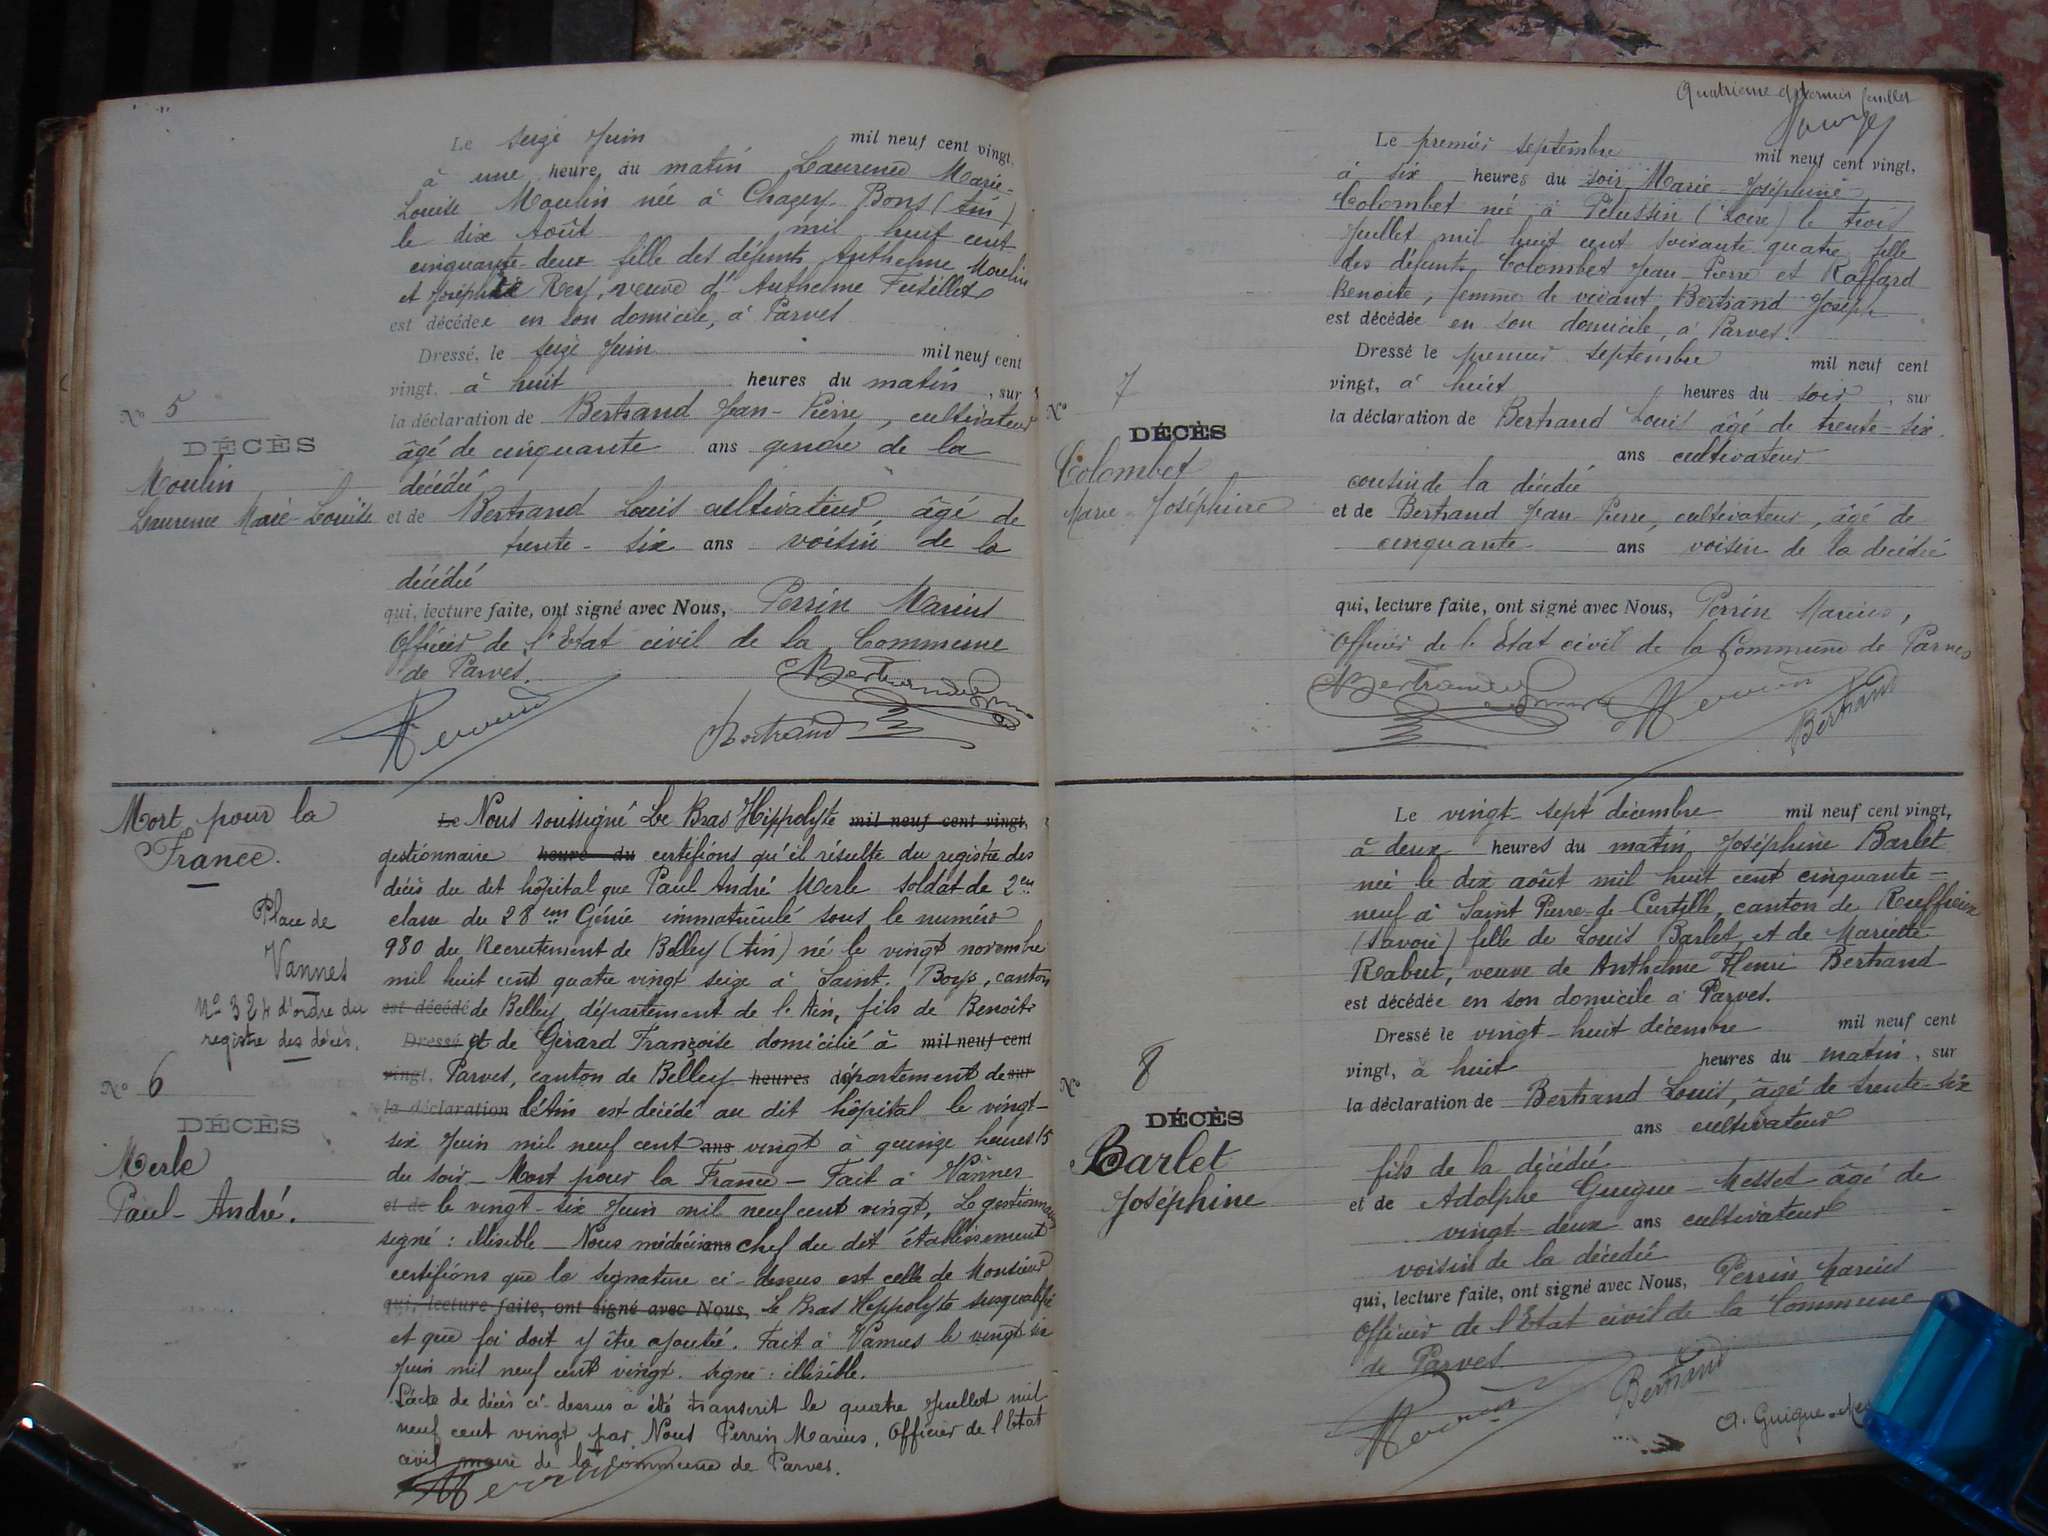 Le seize Juin mil neuf cent vingt,
à une heure du matin Laurence Marie-
Louise Moulin née à Chazey-Bons (Ain)
le dix Août mil huit cent
cinquante-deux fille des défunts Anthelme Moulin
et Joséphte Rey, veuve d' Anthelme Fusillet
est décédée en son domicile, à Parves
Dressé, le seize Juin mil neuf cent
vingt, à huit heures du matin, sur
la déclaration de Bertrand Jean-Pierre, cultivateur
âgé de cinquante ans gendre de la
décédée
et de Bertrand Louis cultivateur âgé de
trente-six ans voisin de la
décédée
qui, lecture faite, ont signé avec Nous, Perrin Marius
Officier de l'Etat civil de la Commune
de Parves.
Perrin
Bertrand
Bertrand
No 5
DÉCÈS
Moulin
Laurence Marie-Louise
Mort pour la
France.
Place de
Vannes
No 324 d'ordre du
registre des décès.
No 6
DÉCÈS
Merle
Paul-André.
Le Nous soussigné Le Bras Hippolyte mil neuf cent vingt,
gestionnaire heure du certifions qu'il résulte du registre des
décès du dit hôpital que Paul André Merle soldat de 2em
classe du 28em Génie immatriculé sous le numéro
980 du Recrutement de Belley (Ain) né le vingt novembre
mil huit cent quatre vingt seize à Saint-Boys, canton
est décédé de Belley, département de l'Ain, fils de Benoît
Dressé et de Gérard Françoise domicilié à mil neuf cent
vingt, Parves, canton de Belley heures département de sur
la déclaration l'Ain est décédé au dit hôpital le vingt-
six Juin mil neuf cent ans vingt à quinze heures 15
du soir - Mort pour la France - Fait à Vannes
et de le vingt-six Juin mil neuf cent vingt, Le gestionnaire
signé : illisible - Nous médecin ans chef du dit établissement
certifions que la signature ci-dessus est celle de Monsieur
qui, lecture faite, ont signé avec Nous, Le Bras Hippolyte susqualifié
et que foi doit y être ajoutée. Fait à Vannes le vingt six
Juin mil neuf cent vingt. signé : illisible.
L'acte de décès ci-dessus a été transcrit le quatre Juillet mil
neuf cent vingt par Nous Perrin Marius, Officier de l'Etat
civil maire de la commune de Parves.
Perrin
Quatrième et dernier feuillet
Le premier septembre mil neuf cent vingt,
à six heures du soir, Marie-Joséphine
Colombet née à Pélussin (Loire) le trois
Juillet mil huit cent soixante quatre fille
des défunts Colombet Jean-Pierre et Raffard
Benoite, femme de vivant Bertrand Joseph
est décédée en son domicile, à Parves.
Dressé le premier septembre mil neuf cent
vingt, à huit heures du soir, sur
la déclaration de Bertrand Louis âgé de trente-six
ans cultivateur
cousin de la décédée
et de Bertrand Jean-Pierre, cultivateur, âgé de
cinquante ans voisin de la décédée
qui, lecture faite, ont signé avec Nous, Perrin Marius,
Officier de l'Etat civil de la Commune de Parves
Bertrand
Perrin
Bertrand
No 7
DÉCÈS
Colombet
Marie-Joséphine
Le vingt-sept décembre mil neuf cent vingt,
à deux heures du matin Joséphine Barlet
née le dix août mil huit cent cinquante-
neuf à Saint Pierre-de-Curtille, canton de Ruffieux
(Savoie) fille de Louis Barlet et de Mariette
Rabut, veuve de Anthelme Henri Bertrand
est décédée en son domicile à Parves.
Dressé le vingt-huit décembre mil neuf cent
vingt, à huit heures du matin, sur
la déclaration de Bertrand Louis, âgé de trente-six
ans cultivateur
fils de la décédée
et de Adolphe Guigue-Messet âgé de
vingt-deux ans cultivateur
voisin de la décédée
qui, lecture faite, ont signé avec Nous, Perrin Marius
Officier de l'Etat civil de la Commune
de Parves.
Perrin
Bertrand
A. Guigue-Me
No 8
DÉCÈS
Barlet
Joséphine